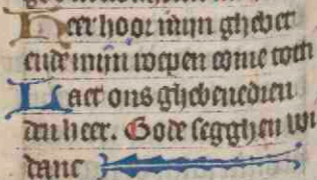 Heer hoor mijn ghebet
ende mijn roepen come toch
Laet ons ghebenedien
den heer. Gode segghen wi
danc